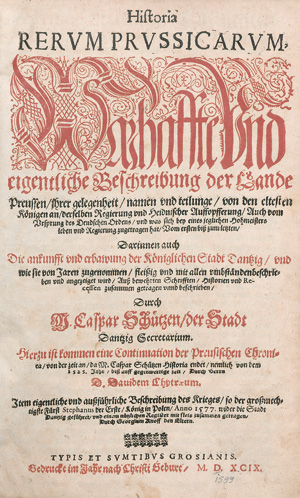 Historia
RERVM PRVSSICARVM,
Warhaffte Vnd
eigentliche Beschreibung der Lande
Preussen/ jhrer gelegenheit/ namen vnd teilunge/ von den eltesten
Königen an/ derselben Regierung vnd Heidnischer Auffopfferung/ Auch vom
Vrsprung des Deudschen Ordens/ vnd was sich bey eines jeglichen Hohmeisters
leben vnd Regierung zugetragen hat/ Vom ersten biß zum letzten/
Darinnen auch
Die ankunfft vnd erbawung der Königlichen Stadt Dantzig/ vnd
wie sie von Jaren zugenommen/ fleißig vnd mit allen vmbstenden beschrie-
ben vnd angezeiget wird/ Auß bewehrten Schrifften/ Historien vnd Re-
cessen zusammen getragen vnnd beschrieben/
Durch
M. Caspar Schützen/ der Stadt
Dantzig Secretarium.
Hierzu ist kommen eine Continuation der Preusischen Chroni-
ca/ von der zeit an/ da M. Caspar Schützen Historia endet/ nemlich von dem
1525. Jahr/ biß auff gegenwertige zeit/ Durch Herrn
D. Dauidem Chytræum.
Item eigentliche vnd außführliche Beschreibung des Krieges/ so der großmech-
tigste Fürst Stephanus der Erste/ König in Polen/ Anno 1577. wider die Stadt
Dantzig geführet/ vnd
Durch Georgium Knoff den Eltern.
TYPIS ET SVMTIBVS GROSIANIS.
Gedruckt im Jahr nach Christi Geburt/ M. D. XCIX.
1599